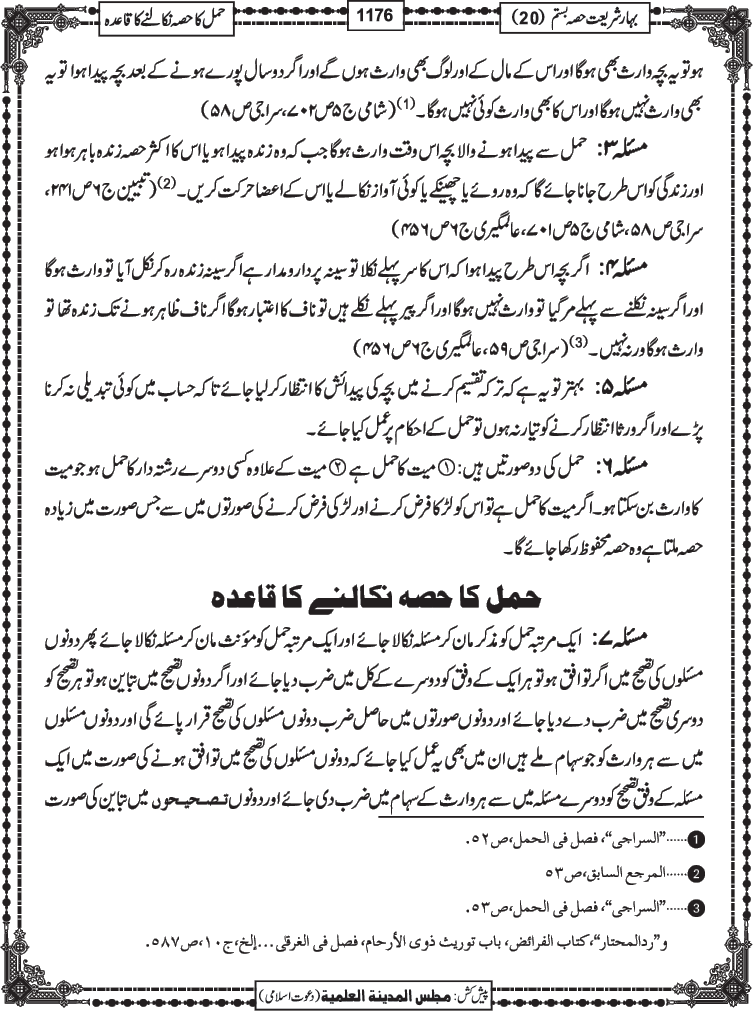 بہارِ شریعت حصہ بستم (20)
1176
حمل کا حصہ نکالنے کا قاعدہ
ہو تو یہ بچہ وارث بھی ہوگا اور اس کے مال کے اور لوگ بھی وارث ہوں گے اور اگر دو سال پورے ہونے کے بعد بچہ پیدا ہوا تو یہ
بھی وارث نہیں ہوگا اور اس کا بھی وارث کوئی نہیں ہوگا۔(1) (شامی ج۵ص۷۰۲، سراجی ص۵۸)
مسئلہ ۳: حمل سے پیدا ہونے والا بچہ اس وقت وارث ہوگا جب کہ وہ زندہ پیدا ہو یا اس کا اکثر حصہ زندہ باہر ہوا ہو
اور زندگی کو اس طرح جانا جائے گا کہ وہ روئے یا چھینکے یا کوئی آواز نکالے یا اس کے اعضا حرکت کریں۔(2) (تبیین ج۶ص۲۴۱،
سراجی ص۵۸، شامی ج۵ص۷۰۱، عالمگیری ج۶ص۴۵۶)
مسئلہ ۴: اگر بچہ اس طرح پیدا ہوا کہ اس کا سر پہلے نکلا تو سینہ پر دارومدار ہے اگر سینہ زندہ رہ کر نکل آیا تو وارث ہوگا
اور اگر سینہ نکلنے سے پہلے مر گیا تو وارث نہیں ہوگا اور اگر پیر پہلے نکلے ہیں تو ناف کا اعتبار ہوگا اگر ناف ظاہر ہونے تک زندہ تھا تو
وارث ہوگا ورنہ نہیں۔(3) (سراجی ص۵۹، عالمگیری ج۶ص۴۵۶)
مسئلہ ۵: بہتر تو یہ ہے کہ ترکہ تقسیم کرنے میں بچہ کی پیدائش کا انتظار کرلیا جائے تاکہ حساب میں کوئی تبدیلی نہ کرنا
پڑے اور اگر ورثا انتظار کرنے کو تیار نہ ہوں تو حمل کے احکام پر عمل کیا جائے۔
مسئلہ ۶: حمل کی دو صورتیں ہیں: ① میت کا حمل ہے ② میت کے علاوہ کسی دوسرے رشتہ دار کا حمل ہو جو میت
کا وارث بن سکتا ہو۔ اگر میت کا حمل ہے تو اس کو لڑکا فرض کرنے اور لڑکی فرض کرنے کی صورتوں میں سے جس صورت میں زیادہ
حصہ ملتا ہے وہ حصہ محفوظ رکھا جائے گا۔
حمل کا حصہ نکالنے کا قاعدہ
مسئلہ ۷: ایک مرتبہ حمل کو مذکر مان کر مسئلہ نکالا جائے اور ایک مرتبہ حمل کو مؤنث مان کر مسئلہ نکالا جائے پھر دونوں
مسئلوں کی تصحیح میں اگر توافق ہو تو ہر ایک کے وفق کو دوسرے کے کل میں ضرب دیا جائے اور اگر دونوں تصحیح میں تباین ہو تو ہر تصحیح کو
دوسری تصحیح میں ضرب دے دیا جائے اور دونوں صورتوں میں حاصل ضرب دونوں مسئلوں کی تصحیح قرار پائے گی اور دونوں مسئلوں
میں سے ہر وارث کو جو سہام ملے ہیں ان میں بھی یہ عمل کیا جائے کہ دونوں مسئلوں کی تصحیح میں توافق ہونے کی صورت میں ایک
مسئلہ کے وفق تصحیح کو دوسرے مسئلہ میں سے ہر وارث کے سہام میں ضرب دی جائے اور دونوں تصحیحوں میں تباین کی صورت
1......"السراجی"، فصل فی الحمل، ص۵۲.
2......المرجع السابق، ص۵۳
3......"السراجی"، فصل فی الحمل، ص۵۳.
و"ردالمحتار"، کتاب الفرائض، باب توریث ذوی الأرحام، فصل فی الغرقی...إلخ، ج۱۰، ص۵۸۷.
پیش کش: مجلس المدینة العلمیة (دعوت اسلامی)